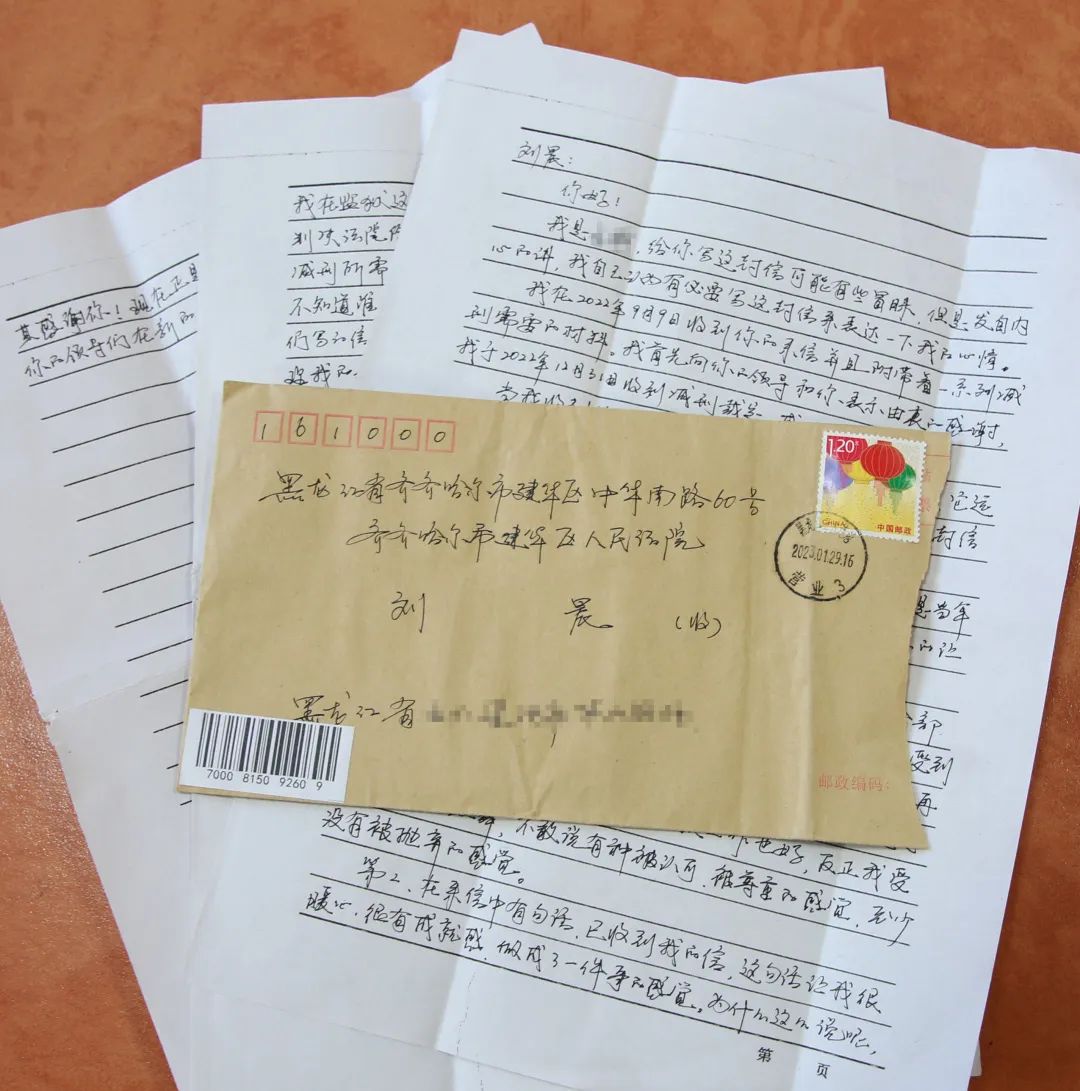 刘晨：
你好！
我是 给你写这封信可能有些冒昧，但是发自内
心的讲，我自己认为有必要写这封信来表达一下我的心情。
我在2022年9月9日收到你的来信并且附带着一系列减
刑需要的材料。我首先向你的领导和你表示由衷的感谢，
我于2022年12月31日收到减刑裁定
当我收到
还
封信
是当年
的
部
受到
再
也好，反正我受
不敢说有种被认可，被尊重的感觉，至少
没有被抛弃的感觉。
第2、在来信中有句话，已收到我的信，这句话让我很
暖心，很有成就感，做成了一件事的感觉。为什么这么说呢，
第 页
我在监狱这
判决法院
减刑所需
不知道谁
们写的信
我的
其感谢你！现在正是
你的领导们在新的
161000
黑龙江省齐齐哈尔市建华区中华南路60号
齐齐哈尔市建华区人民法院
刘 晨 （收）
黑龙江省
1.20元
CHINA
中国邮政
黑龙
2023.01.29.16
营业3
邮政编码：
7000 8150 9260 9